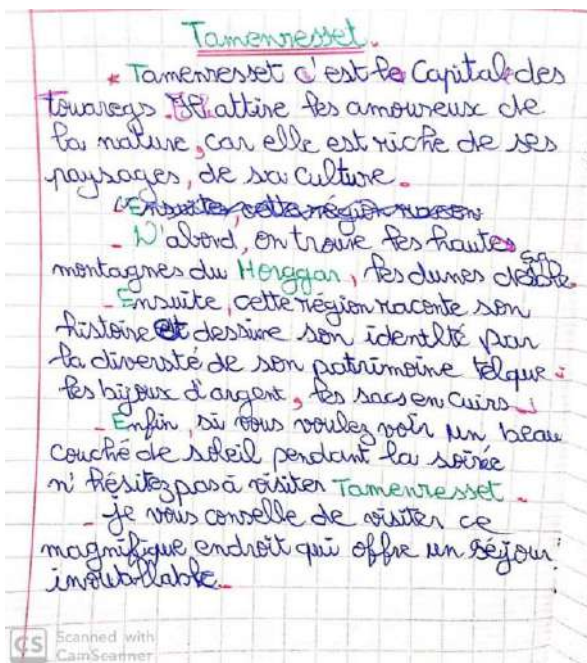 Tamenresset.
* Tamenresset c'est le Capital des
touaregs. Il attire les amoureux de
la nature, car elle est riche de ses
paysages, de sa culture.
Ensuite, cette région racon
- D'abord, on trouve les hautes
montagnes du Horggar, les dunes de sable.
- Ensuite, cette région raconte son
histoire et dessine son identité par
la diversté de son patrimoine telque :
les bijoux d'argent, les sacs en cuirs.
- Enfin, si vous voulez voir un beau
couché de soleil pendant la soirée
n'hésitez pas à visiter Tamenresset.
- je vous conselle de visiter ce
magnifique endroit qui offre un séjour
inoubllable.
CS Scanned with
CamScanner